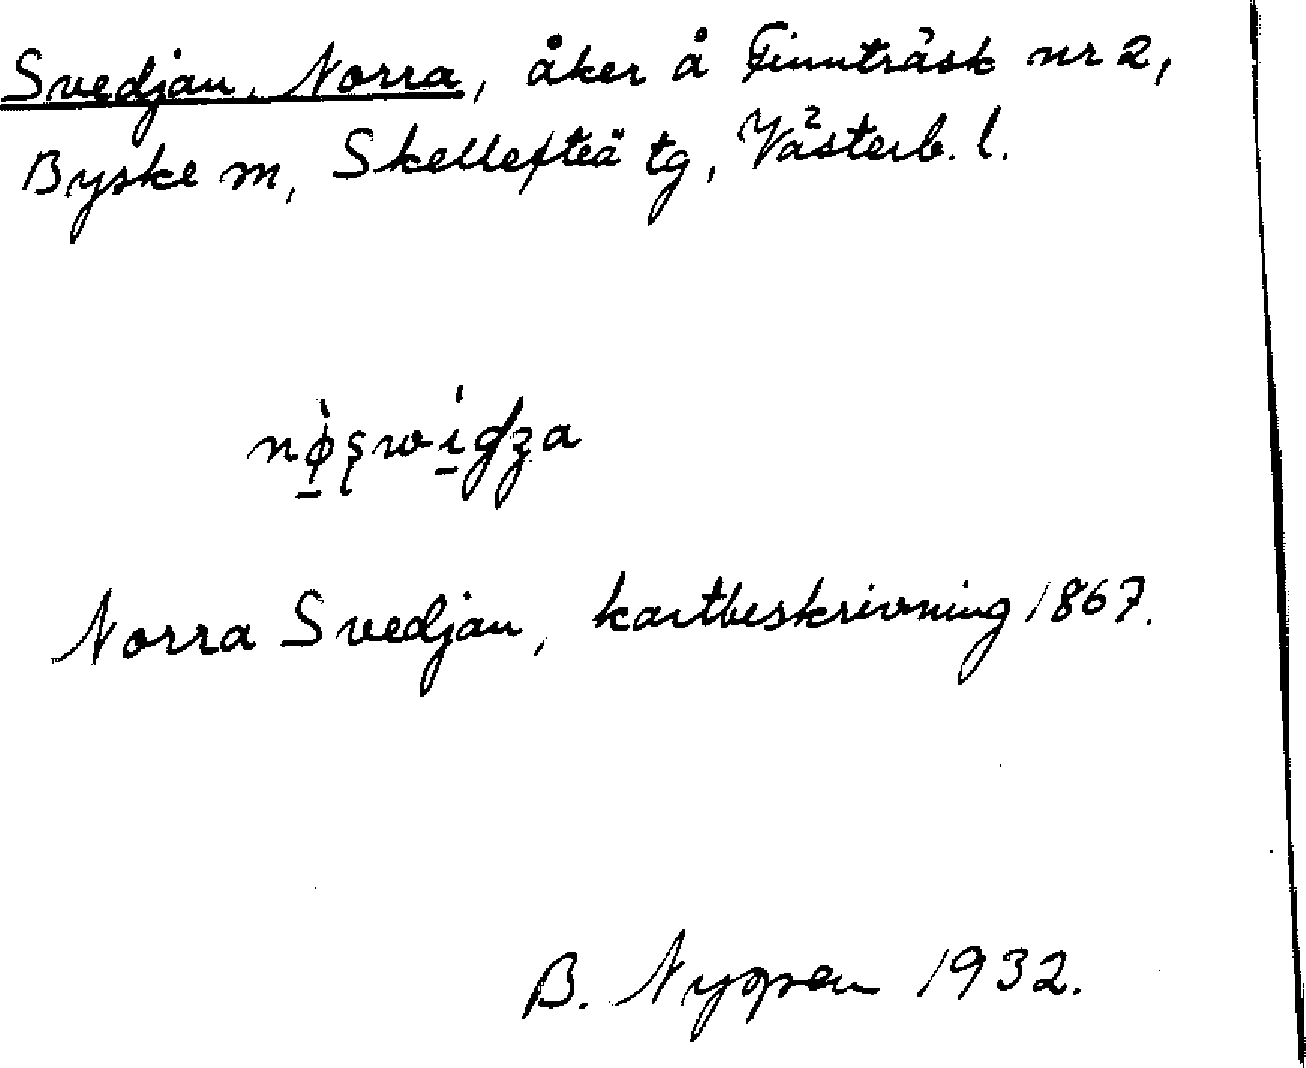 Svedjan, Norra, åker å Finnträsk nr 2,
Byske sn, Skellefteå tg, Västerb. l.
Norra Svedjan, kartbeskrivning 1867.
B. 1932.